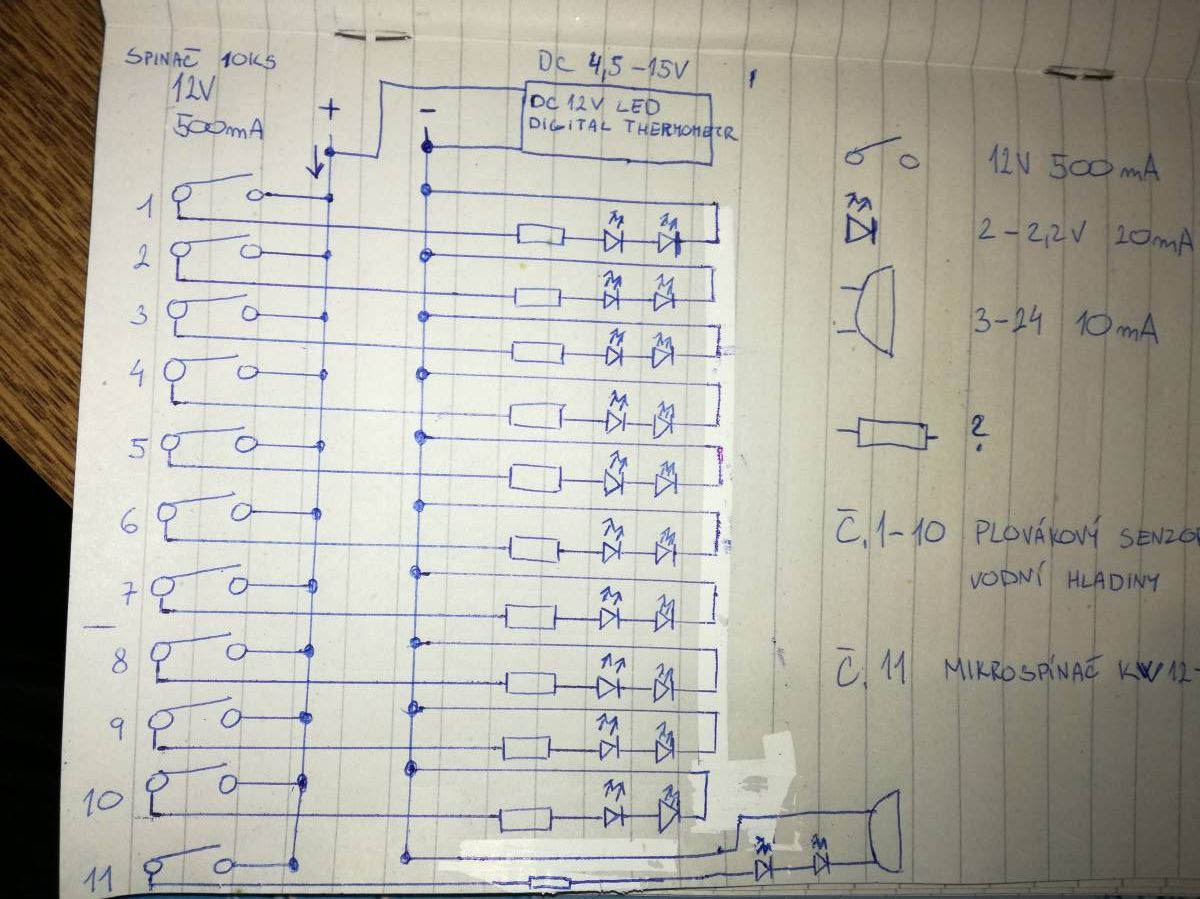 SPINAČ 10KS
12V
500mA
+
-
DC 4,5-15V
DC 12V LED
DIGITAL THERMOMETR
1
2
3
4
5
6
7
8
9
10
11
12V 500mA
2-2,2V 20mA
3-24 10mA
?
Č.1-10 PLOVÁKOVÝ
VODNÍ HLADINY
Č.11 MIKROSPÍNAČ KW12-